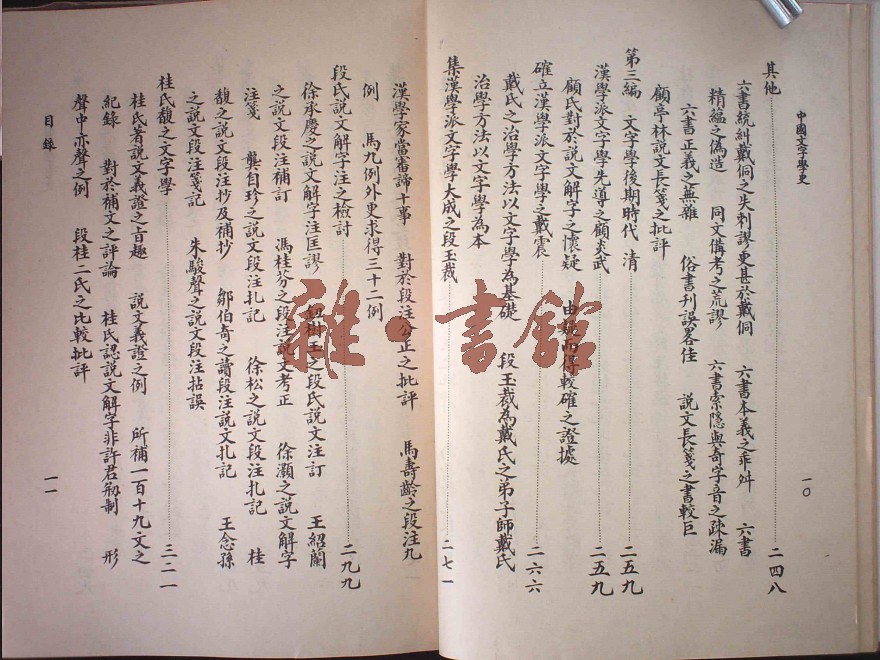 中國文字學史
一〇
其他 二四八
六書統糾戴侗之失刺謬更甚於戴侗 六書本義之乖舛 六書
精蘊之偽造 同文備考之荒謬 六書索隱與奇字音之疎漏
六書正義之無雜 俗書刊誤畧佳 說文長箋之書較巨
顧亭林說文長箋之批評
第三編 文字學後期時代 清 二五九
漢學派文字學先導之顧炎武 二五九
顧氏對於說文解字之懷疑 由疑而得較確之證據
確立漢學派文字學之戴震 二六六
戴氏之治學方法以文字學為基礎 段玉裁為戴氏之弟子師戴氏
治學方法以文字學為本
集漢學派文字學大成之段玉裁 二七一
漢學家當審諦十事 對於段注公正之批評 馬壽齡之段注九
例 馬九例外更求得三十二例
段氏說文解字注之檢討 二九九
徐承慶之說文解字注匡謬 鈕樹玉之段氏說文注訂 王紹蘭
之說文段注補訂 馮桂芬之段注說文考正 徐灝之說文解字
注箋 龔自珍之說文段注札記 徐松之說文段注札記 桂
馥之說文段注抄及補抄 鄒伯奇之讀段注說文札記 王念孫
之說文段注箋記 朱駿聲之說文段注拈誤
桂氏馥之文字學 三二一
桂氏著說文義證之旨趣 說文義證之例 所補一百十九文之
紀錄 對於補文之評論 桂氏認說文解字非許君刱制 形
聲中亦聲之例 段桂二氏之比較批評
目錄
一一
雜·書館